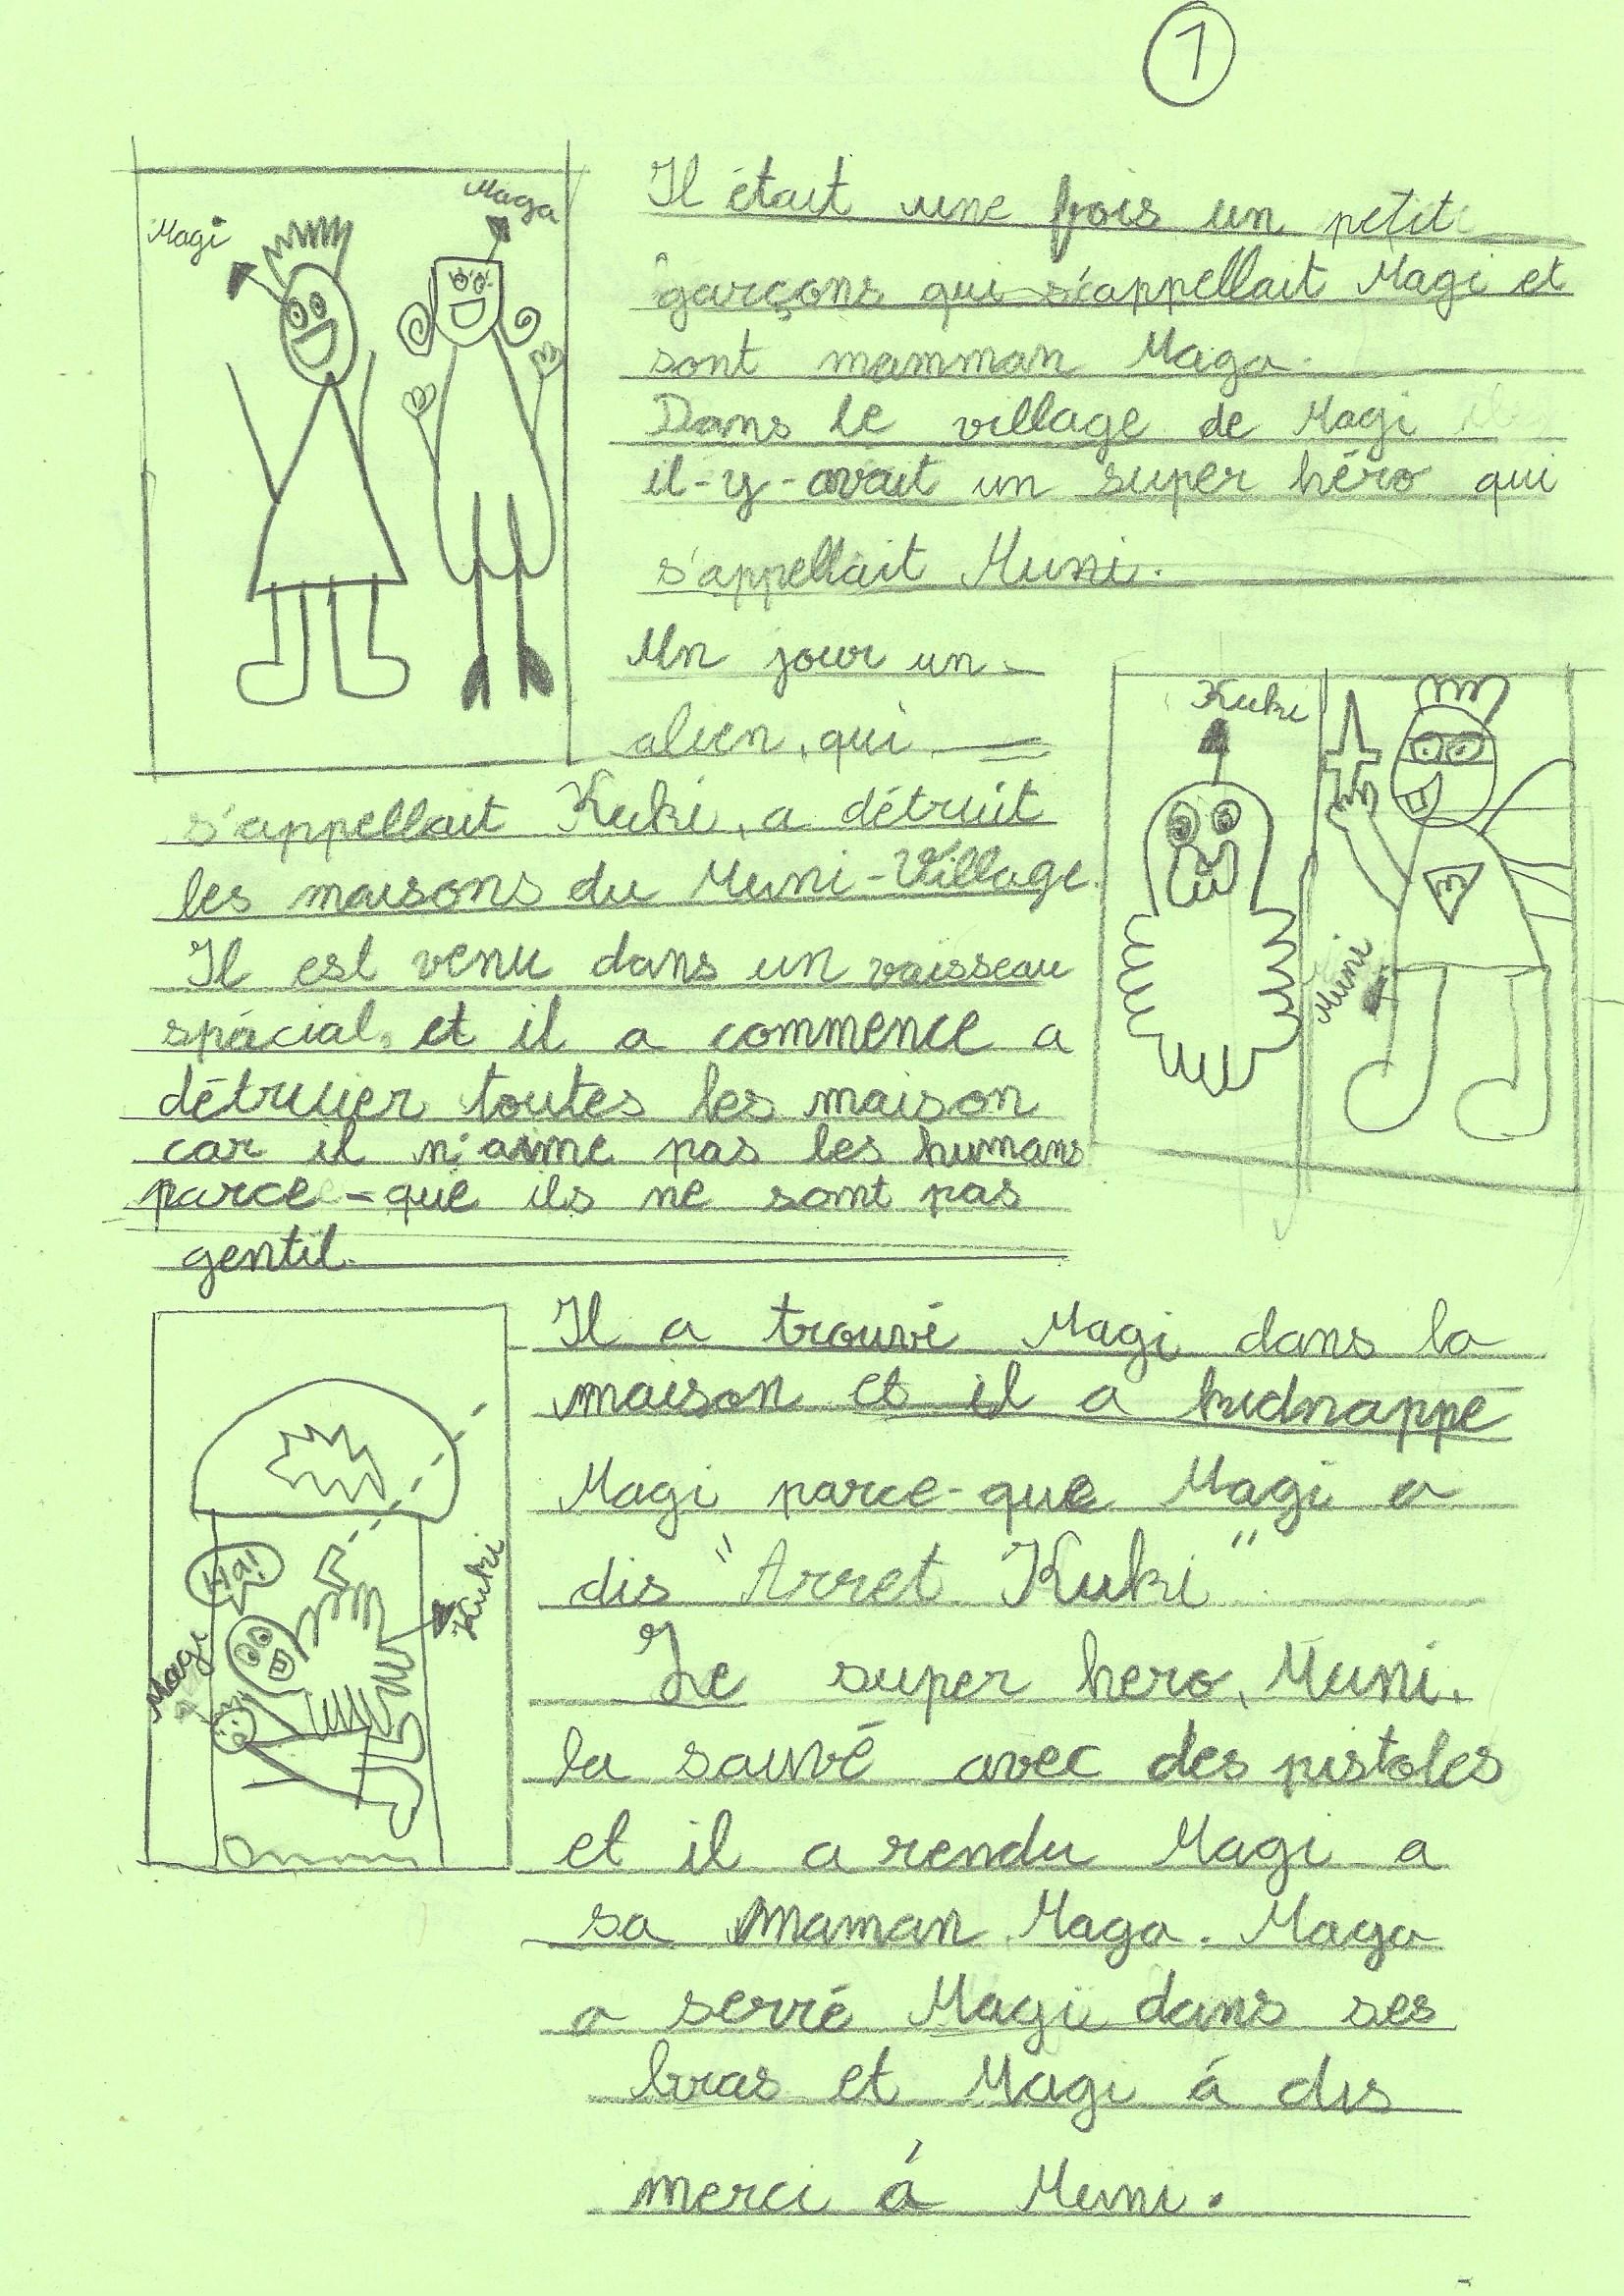 1
Magi
Maga
Il était une fois un petit
garçons qui s'appellait Magi et
sont mamman Maga.
Dans le village de Magi
il-y-avait un super héro qui
s'appellait Muni.
Un jour un
alien, qui
s'appellait Kuki, a détruit
les maisons du Muni-Village.
Il est venu dans un vaisseau
spácial, et il a commence a
détruier toutes les maison
car il n'aime pas les humans
parce-que ils ne sont pas
gentil.
Kuki
M
Muni
Il a trouvé Magi dans la
maison et il a kidnappe
Magi parce-que Magi a
dis "Arret Kuki"
Le super hero, Muni,
la sauvé avec des pistoles
et il a rendu Magi a
sa maman Maga. Maga
a serré Magi dans ses
bras et Magi á dis
merci á Muni.
Ha!
Magi
Kuki